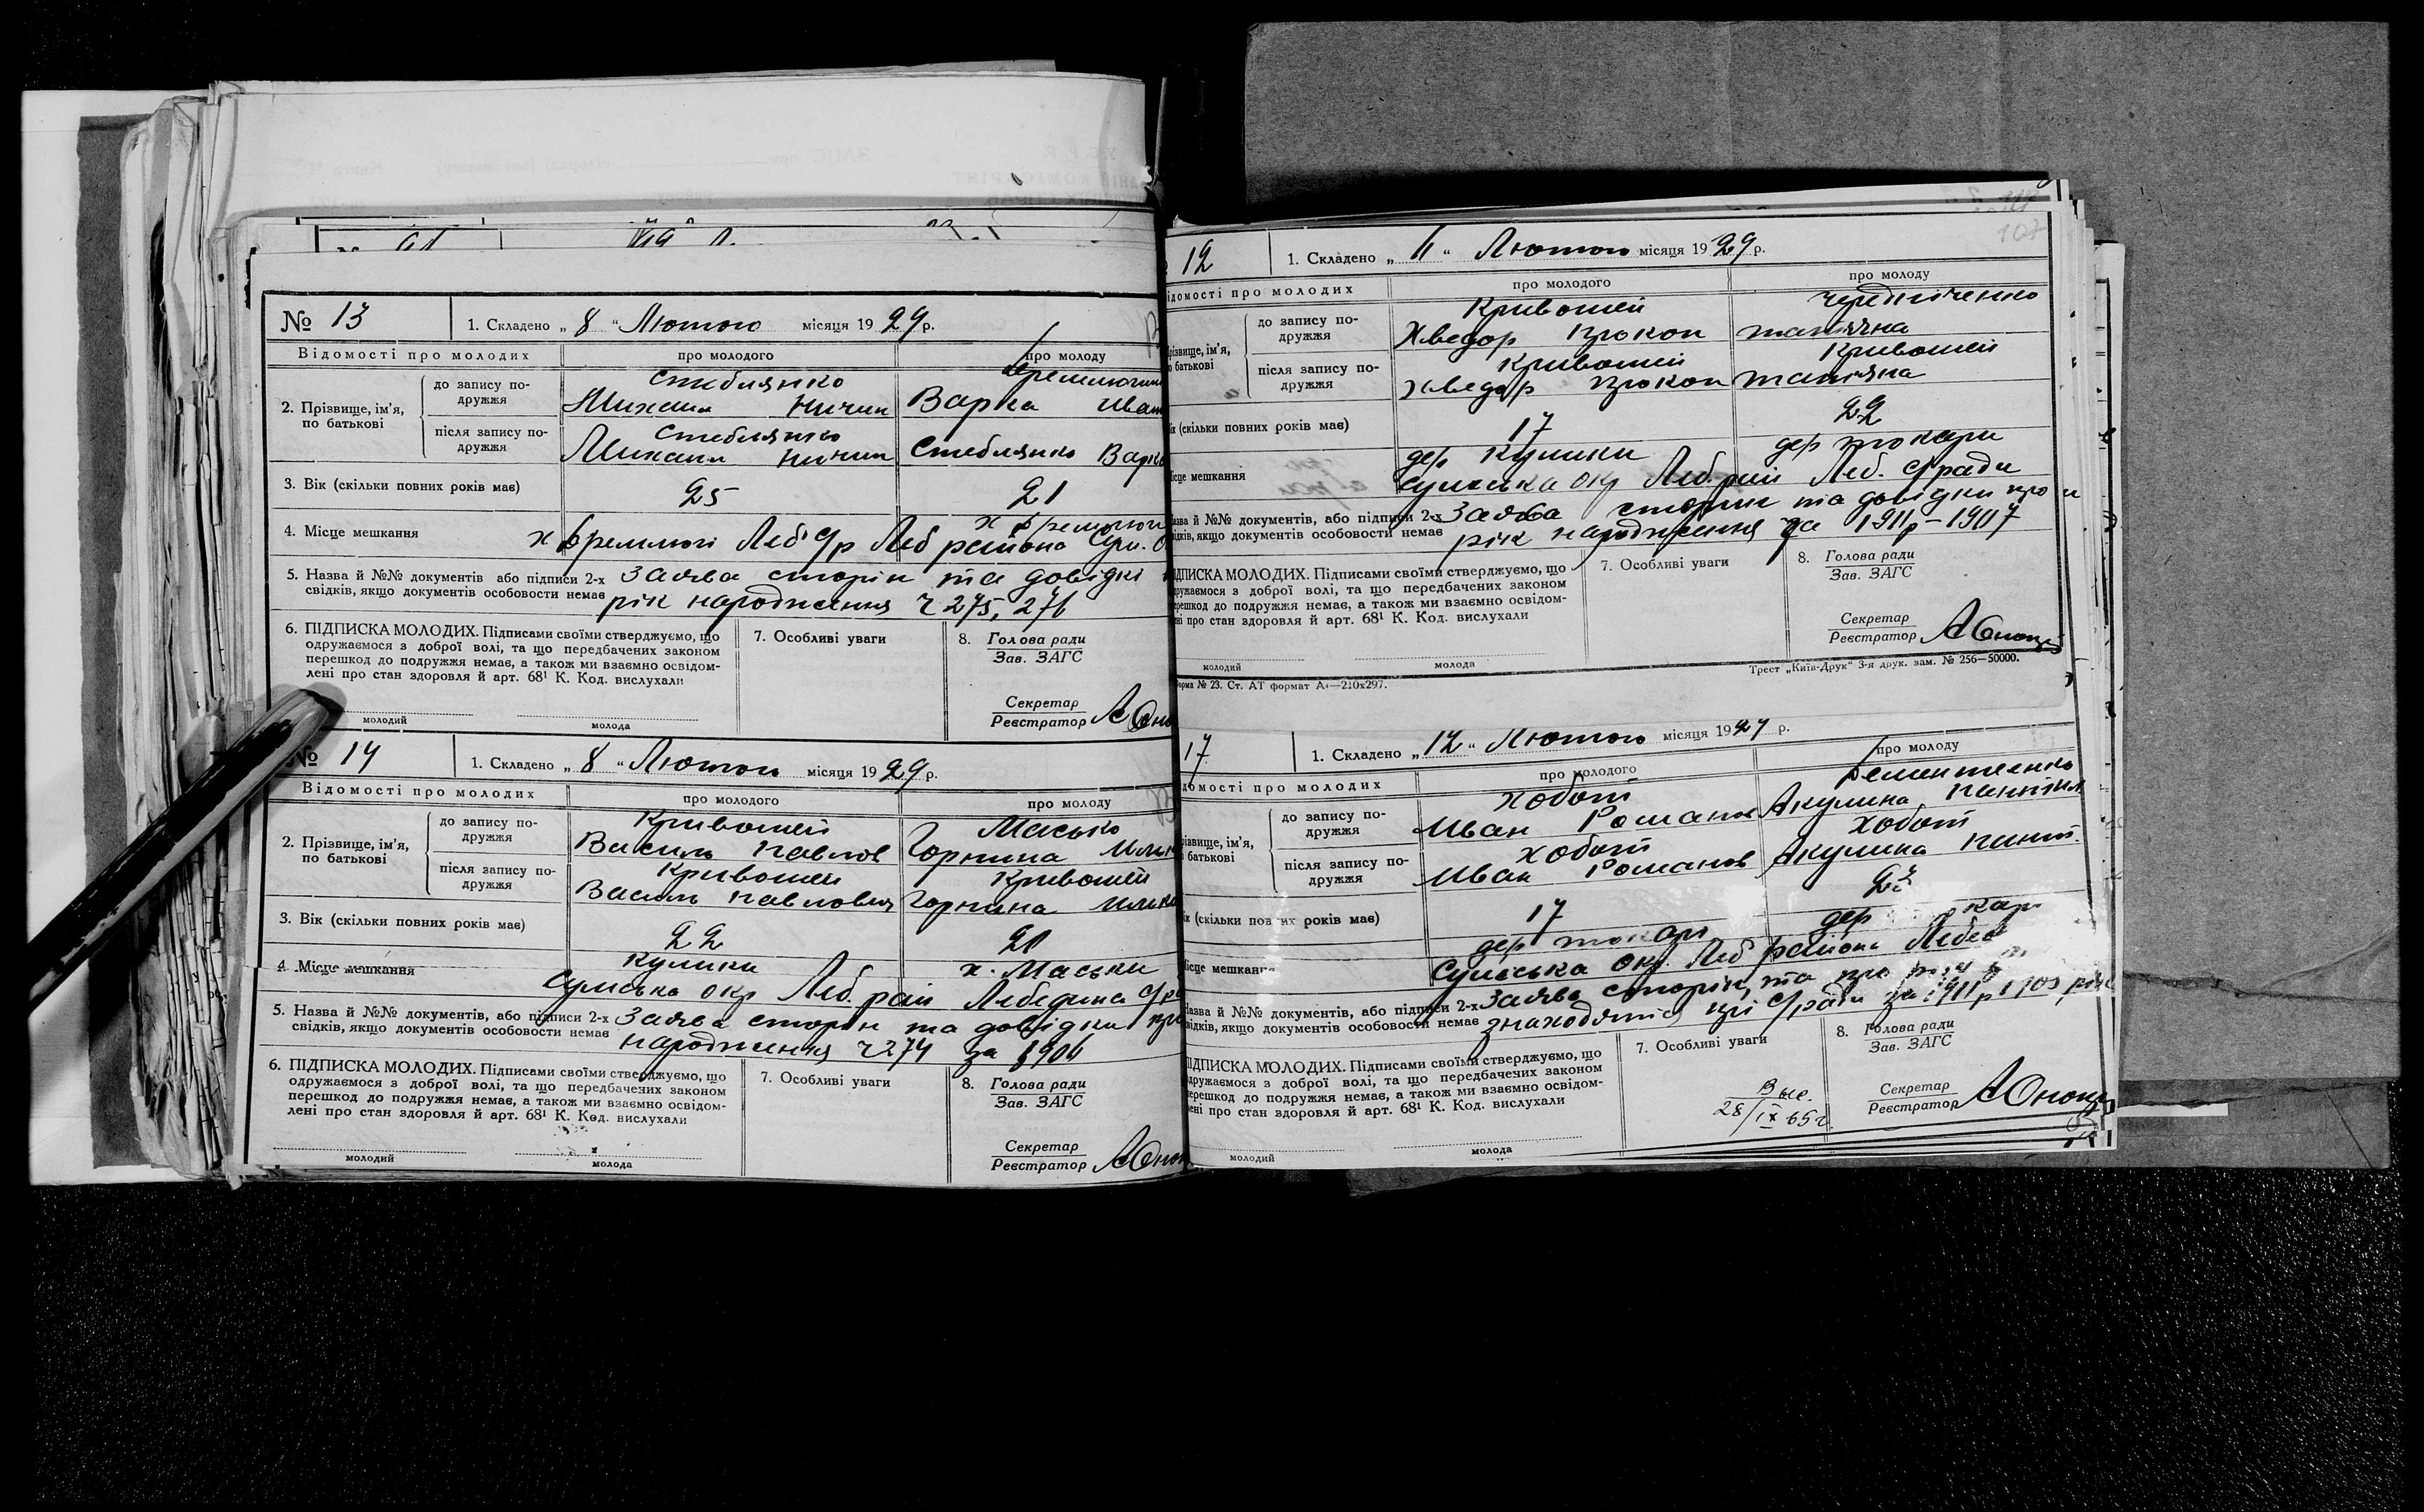 № 13
1. Складено „ 8 “ Лютого місяця 1929 р.
Відомості про молодих
про молодого
про молоду
2. Прізвище, ім'я, по батькові
до запису по-
дружжя
Стеблянко
Михаил Ничип
Варка Иван
після запису по-
дружжя
Стеблянко
Михаил Ничип
Стеблянко Варка
3. Вік (скільки повних років має)
25
21
4. Місце мешкання
х Времлюги Леб с/р Леб района Сум. О
5. Назва й №№ документів або підписи 2-х
свідків, якщо документів особовости немає
Заява сторін та довідкі
рік народження ч 275, 276
6. ПІДПИСКА МОЛОДИХ. Підписами своїми стверджуємо, що
одружаємося з доброї волі, та що передбачених законом
перешкод до подружжя немає, а також ми взаємно освідом-
лені про стан здоровля й арт. 68¹ К. Код. вислухали
молодий
молода
7. Особливі уваги
8. Голова ради
Зав. ЗАГС
Секретар
Реєстратор
№ 14
1. Складено „ 8 “ Лютого місяця 1929 р.
Відомості про молодих
про молодого
про молоду
2. Прізвище, ім'я,
по батькові
до запису по-
дружжя
Кривошей
Василь Павлов
Масько
Горпина Ильк
після запису по-
дружжя
Кривошей
Василь Павлович
Кривошей
Горпина Илько
3. Вік (скільки повних років має)
22
20
4 Місце мешкання
Кулики
х. Маськи
Сумська окр Леб. рай Лебедина с/ра
5. Назва й №№ документів, або підписи 2-х
свідків, якщо документів особовости немає
Заява сторін та довідки про
народження ч 274 за 1906
6. ПІДПИСКА МОЛОДИХ. Підписами своїми стверджуємо, що
одружаємося з доброї волі, та що передбачених законом
перешкод до подружжя немає, а також ми взаємно освідом-
лені про стан здоровля й арт. 68¹ К. Код. вислухали
молодий
молода
7. Особливі уваги
8. Голова ради
Зав. ЗАГС
Секретар
Реєстратор
107
12
1. Складено „ 11 “ Лютого місяця 1929 р.
ідомості про молодих
про молодого
про молоду
різвище, ім'я,
о батькові
до запису по-
дружжя
Кривошей
Хведор Прокоп
Чередніченко
Татяна
після запису по-
дружжя
Кривошей
Хведор Прокоп
Кривошей
Татяна
ік (скільки повних років має)
17
22
ісце мешкання
дер Кулики
дер Токари
Сумська окр Леб. рай Леб. с/ради
азва й №№ документів, або підписи 2-х
ідків, якщо документів особовости немає
Заява сторін та довідки про
рік народження за 1911р – 1907
ІДПИСКА МОЛОДИХ. Підписами своїми стверджуємо, що
дружаємося з доброї волі, та що передбачених законом
ерешкод до подружжя немає, а також ми взаємно освідом-
ені про стан здоровля й арт. 68¹ К. Код. вислухали
молодий
молода
7. Особливі уваги
8. Голова ради
Зав. ЗАГС
Секретар
Реєстратор
орма № 23. Ст. АТ формат А₄—210х297.
Трест „Київ-Друк“ 3-я друк. зам. № 256—50000.
17
1. Складено „ 12 “ Лютого місяця 1929 р.
домості про молодих
про молодого
про молоду
різвище, ім'я,
батькові
до запису по-
дружжя
Хобот
Иван Романов
Дементиенко
Акулина
після запису по-
дружжя
Хобот
Иван Романов
Хобот
Акулина
ік (скільки повних років має)
17
23
ісце мешкання
дер Токари
дер
Сумська окр. Леб района
азва й №№ документів, або підписи 2-х
відків, якщо документів особовости немає
Заява сторін, та про
знаходятся при с/раді за 1911р
ІДПИСКА МОЛОДИХ. Підписами своїми стверджуємо, що
дружаємося з доброї волі, та що передбачених законом
ерешкод до подружжя немає, а також ми взаємно освідом-
ені про стан здоровля й арт. 68¹ К. Код. вислухали
молодий
молода
7. Особливі уваги
28/IX 65г.
8. Голова ради
Зав. ЗАГС
Секретар
Реєстратор